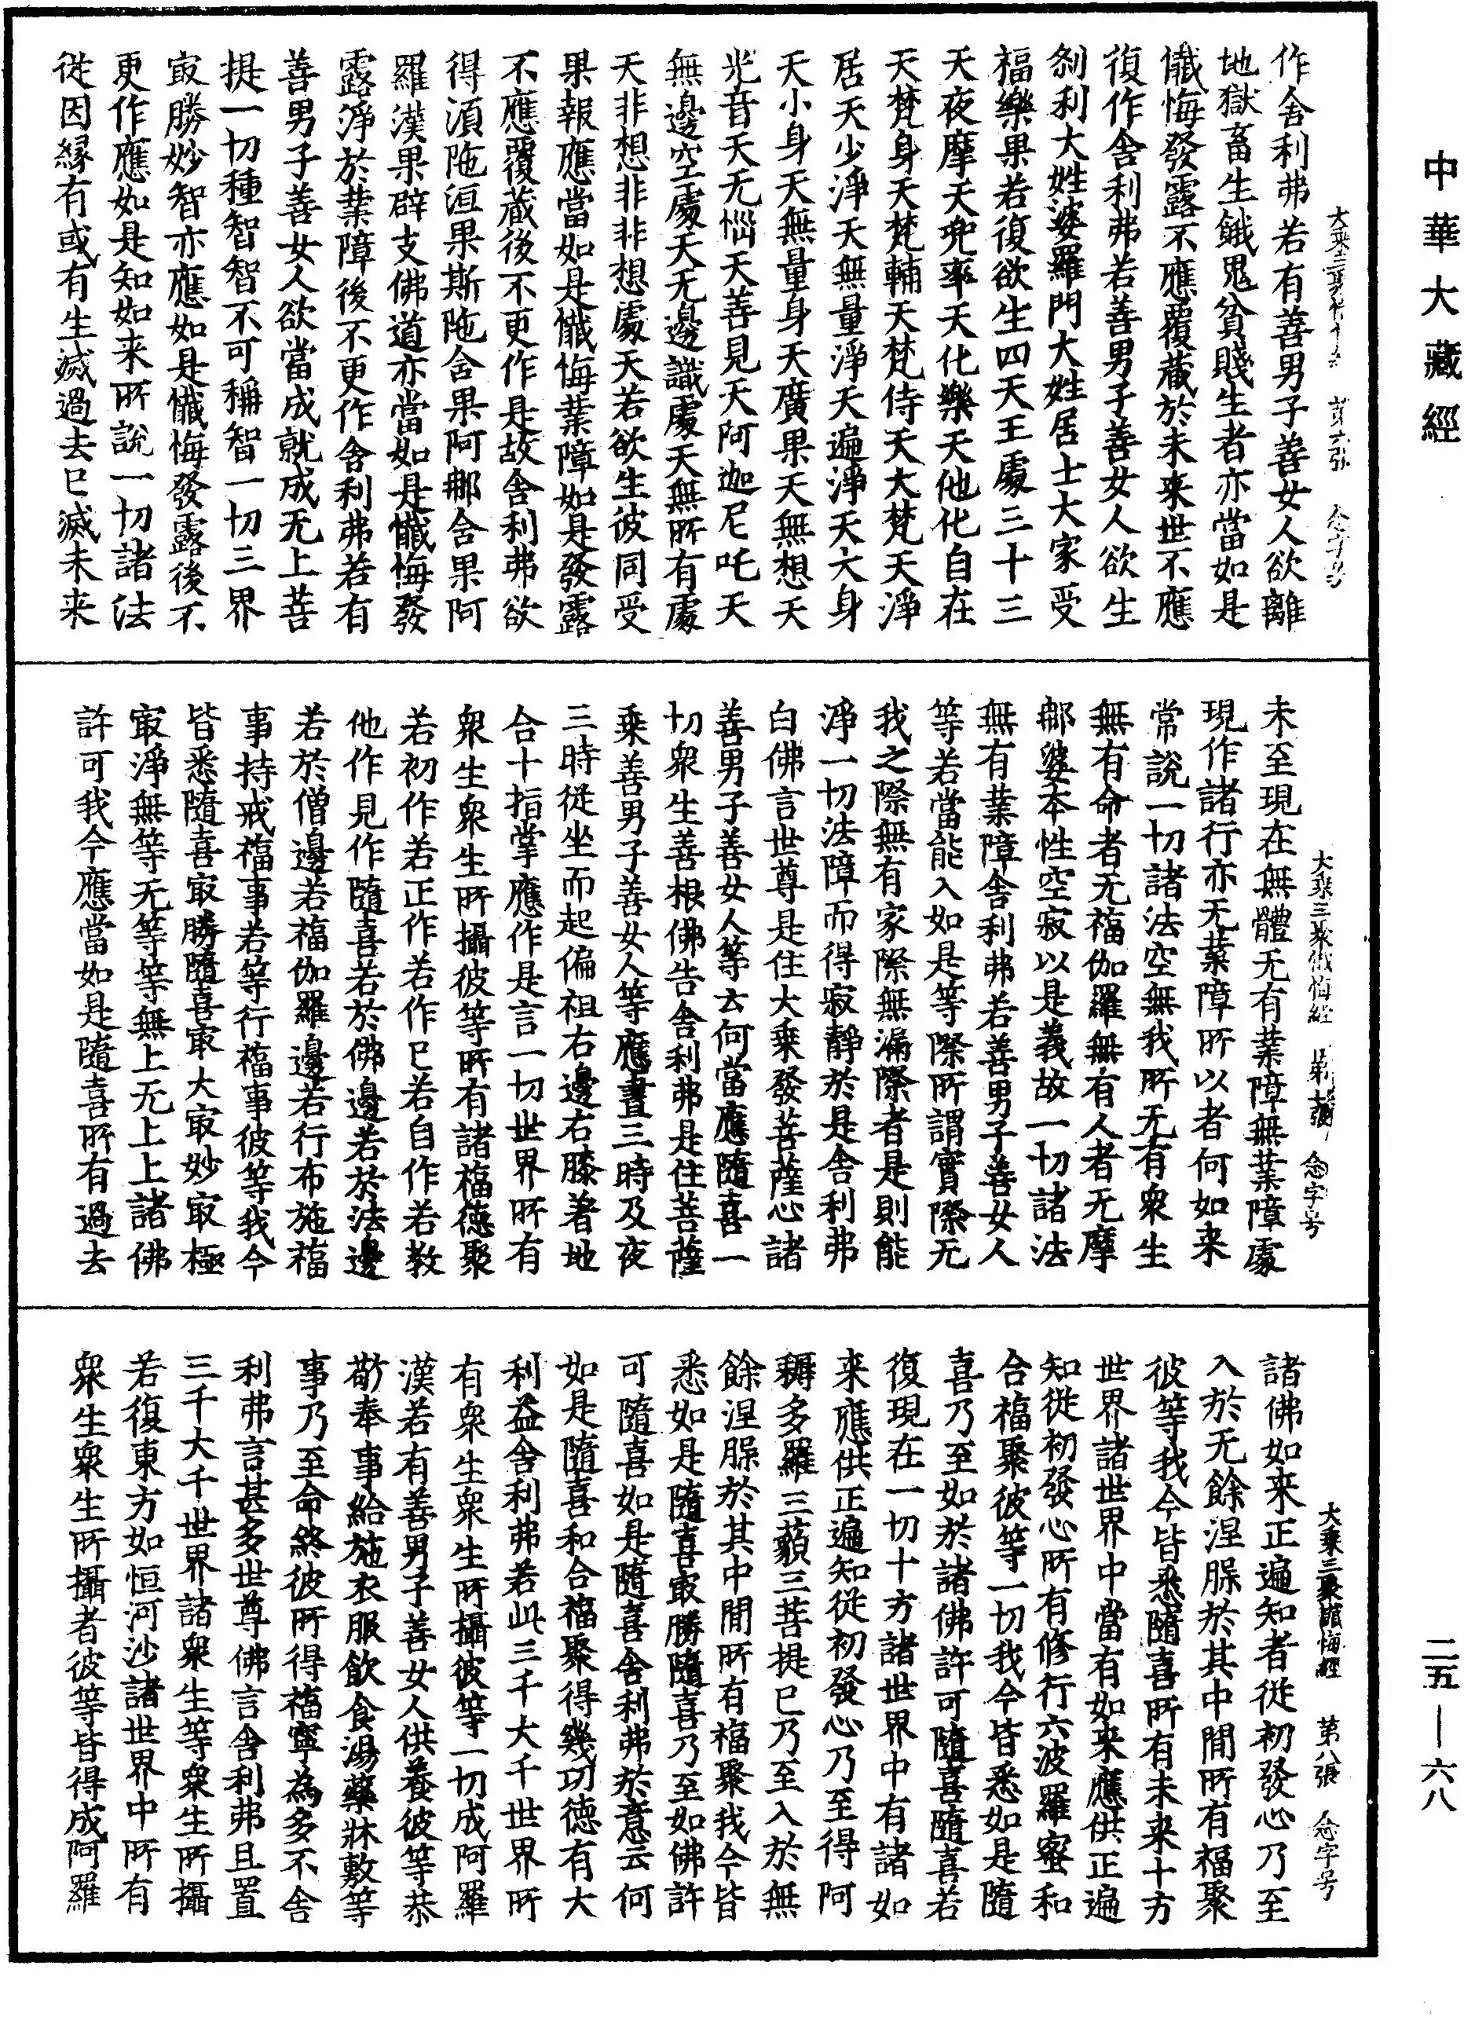 中華大藏經
二五—六八
作舍利弗若有善男子善女人欲離
地獄畜生餓鬼貧賤生者亦當如是
懺悔發露不應覆藏於未来世不應
復作舍利弗若善男子善女人欲生
剎利大姓婆羅門大姓居士大家受
福樂果若復欲生四天王處三十三
天夜摩天兜率天化樂天他化自在
天梵身天梵輔天梵侍天大梵天淨
居天少淨天無量淨天遍淨天大身
天小身天無量身天廣果天無想天
光音天无惱天善見天阿迦尼吒天
無邊空處天无邊識處天無所有處
天非想非非想處天若欲生彼同受
果報應當如是懺悔業障如是發露
不應覆藏後不更作是故舍利弗欲
得須陁洹果斯陁含果阿那含果阿
羅漢果辟支佛道亦當如是懺悔發
露淨於業障後不更作舍利弗若有
善男子善女人欲當成就成无上菩
提一切種智智不可稱智一切三界
㝡勝妙智亦應如是懺悔發露後不
更作應如是知如来所說一切諸法
從因緣有或有生滅過去已滅未来
大乘三聚懺悔經 第七張 念字号
未至現在無體无有業障無業障處
現作諸行亦无業障所以者何如来
常說一切諸法空無我所无有衆生
無有命者无福伽羅無有人者无摩
那婆本性空寂以是義故一切諸法
無有業障舍利弗若善男子善女人
等若當能入如是等際所謂實際无
我之際無有家際無漏際者是則能
淨一切法障而得寂靜於是舍利弗
白佛言世尊是住大乗發菩薩心諸
善男子善女人等云何當應隨喜一
切衆生善根佛告舍利弗是住菩薩
乗善男子善女人等應晝三時及夜
三時從坐而起偏袒右邊右膝著地
合十指掌應作是言一切世界所有
衆生衆生所攝彼等所有諸福德聚
若初作若正作若作已若自作若教
他作見作隨喜若於佛邊若於法邊
若於僧邊若福伽羅邊若行布施福
事持戒福事若等行福事彼等我今
皆悉隨喜㝡勝隨喜㝡大㝡妙㝡極
㝡淨無等无等等無上无上上諸佛
許可我今應當如是隨喜所有過去
大乘三聚懺悔經 第八張 念字号
諸佛如来正遍知者從初發心乃至
入於无餘涅槃於其中閒所有福聚
彼等我今皆悉隨喜所有未来十方
世界諸世界中當有如来應供正遍
知從初發心所有修行六波羅蜜和
合福聚彼等一切我今皆悉如是隨
喜乃至如於諸佛許可隨喜隨喜若
復現在一切十方諸世界中有諸如
来應供正遍知從初發心乃至得阿
耨多羅三藐三菩提已乃至入於無
餘涅槃於其中閒所有福聚我今皆
悉如是隨喜㝡勝隨喜乃至如佛許
可隨喜如是隨喜舍利弗於意云何
如是隨喜和合福聚得幾功德有大
利益舍利弗若此三千大千世界所
有衆生衆生所攝彼等一切成阿羅
漢若有善男子善女人供養彼等恭
敬奉事給施衣服飲食湯藥牀敷等
事乃至命終彼所得福寧為多不舍
利弗言甚多世尊佛言舍利弗且置
三千大千世界諸衆生等衆生所攝
若復東方如恒河沙諸世界中所有
衆生衆生所攝者彼等皆得成阿羅